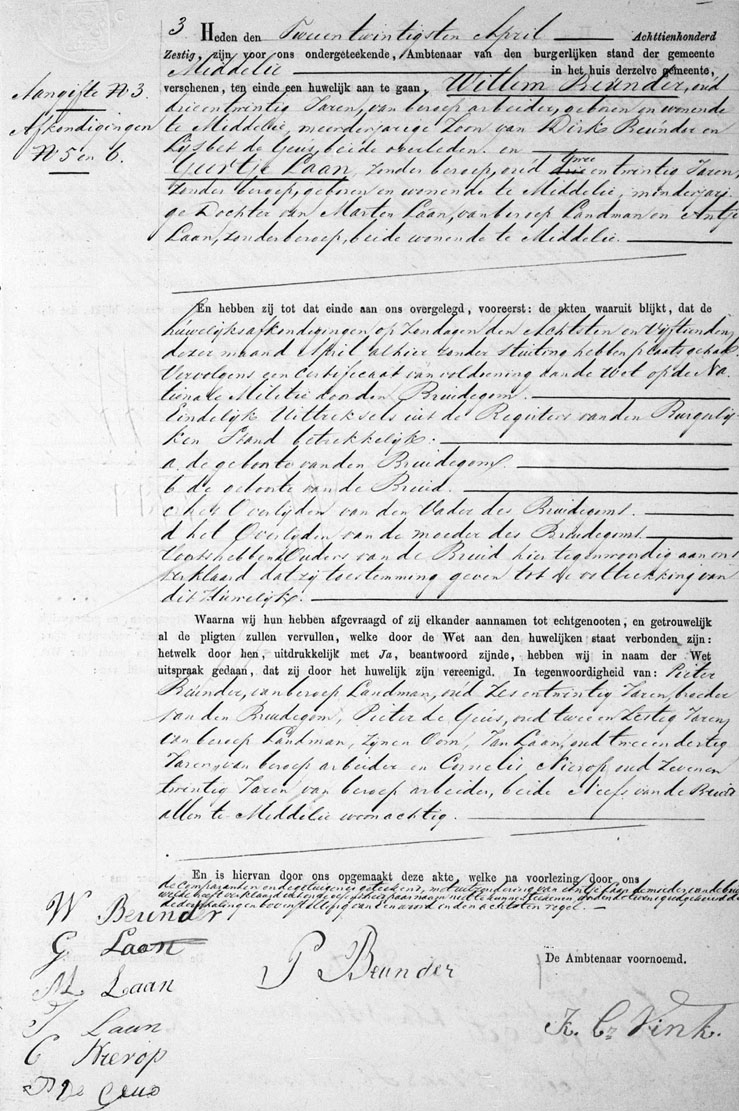 3 Heden den Tweeentwintigsten April Achttienhonderd
Zestig, zijn voor ons ondergeteekende, Ambtenaar van den burgerlijken stand der gemeente
Middelie in het huis derzelve gemeente,
verschenen, ten einde een huwelijk aan te gaan, Willem Beunder, oud
drieentwintig Jaren, van beroep arbeider, geboren en wonende
te Middelie, meerderjarige Zoon van Dirk Beunder en
Lijsbet de Geus, beide overleden. en
Geertje Laan, zonder beroep, oud twee entwintig Jaren,
zonder beroep, geboren en wonende te Middelie, minderjari-
ge Dochter van Marten Laan, van beroep Landman en Antje
Laan, zonder beroep, beide wonende te Middelie.
Aangifte N 3.
Afkondigingen
N 5 en 6.
En hebben zij tot dat einde aan ons overgelegd, vooreerst: de akten waaruit blijkt, dat de
huwelijksafkondigingen op Zondagen den Achtsten en Vijftienden
dezer maand April alhier zonder stuiting hebben plaats gehad.
Vervolgens een certificaat van voldoening aan de Wet op de Na-
tionale Militie door den Bruidegom.
Eindelijk Uittreksels uit de Registers van den Burgerlij-
ken Stand betrekkelijk:
a. de geboorte van den Bruidegom.
b de geboorte van de Bruid.
c het Overlijden van den Vader des Bruidegoms.
d het Overlijden van de moeder des Bruidegoms.
Voorts hebben Ouders van de Bruid hier tegenwoordig aan ons
verklaard dat zij toestemming geven tot de voltrekking van
dit Huwelijk.
Waarna wij hun hebben afgevraagd of zij elkander aannamen tot echtgenooten, en getrouwelijk
al de pligten zullen vervullen, welke door de Wet aan den huwelijken staat verbonden zijn:
hetwelk door hen, uitdrukkelijk met Ja, beantwoord zijnde, hebben wij in naam der Wet
uitspraak gedaan, dat zij door het huwelijk zijn vereenigd. In tegenwoordigheid van: Pieter
Beunder, van beroep Landman, oud Zes entwintig Jaren, broeder
van den Bruidegom, Pieter de Geus, oud twee en Zestig Jaren,
van beroep Landman, Zijnen Oom, Jan Laan, oud twee en dertig
Jaren, van beroep arbeider en Cornelis Nierop, oud Zeven en
twintig Jaren van beroep arbeider, beide Neefs van de Bruid
allen te Middelie woonachtig.
En is hiervan door ons opgemaakt deze akte, welke na voorlezing door ons
de Comparanten en de getuigen is geteekend, met uitzondering van Antje Laan de moeder van de bruid
W Beunder
G Laan
M Laan
J Laan
C Nierop
P De Geus
P Beunder
De Ambtenaar voornoemd.
K. Cz Vink.